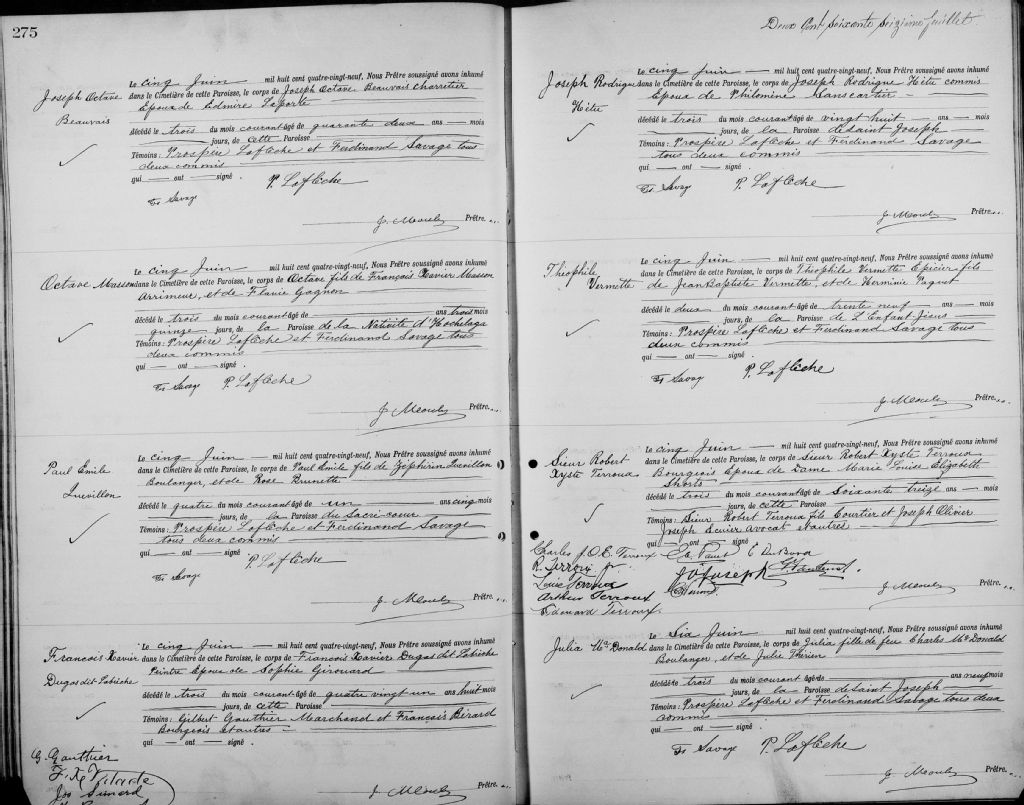 275
Joseph Octave
Beauvais
Le cinq Juin — mil huit cent quatre-vingt-neuf, Nous Prêtre soussigné avons inhumé
dans le Cimetière de cette Paroisse, le corps de Joseph Octave Beauvais charretier
Epoux de Edmire Laporte
décédé le trois du mois courant âgé de quarante deux ans — mois
— jours, de cette Paroisse
Témoins : Prospère Laflèche et Ferdinand Savage tous
deux commis
qui — ont — signé.
Fd Savage P. Laflèche
Prêtre.
Octave Masson
Le cinq Juin — mil huit cent quatre-vingt-neuf, Nous Prêtre soussigné avons inhumé
dans le Cimetière de cette Paroisse, le corps de Octave fils de François Xavier Masson
Arrimeur, et de Flavie Gagnon
décédé le trois du mois courant âgé de — ans trois mois
quinze jours, de la Paroisse de la Nativité d'Hochelaga
Témoins : Prospère Laflèche et Ferdinand Savage tous
deux commis
qui — ont — signé.
Fd Savage P. Laflèche
Prêtre.
Paul Emile
Quevillon
Le cinq Juin — mil huit cent quatre-vingt-neuf, Nous Prêtre soussigné avons inhumé
dans le Cimetière de cette Paroisse, le corps de Paul Emile fils de Zéphirin Quevillon
Boulanger, et de Rose Brunette
décédé le quatre du mois courant âgé de un ans cinq mois
— jours, de la Paroisse du Sacré-coeur
Témoins : Prospère Laflèche et Ferdinand Savage
tous deux commis
qui — ont — signé.
P. Laflèche
Fd Savage
Prêtre.
François Xavier
Dugas dit Labrèche
Le cinq Juin — mil huit cent quatre-vingt-neuf, Nous Prêtre soussigné avons inhumé
dans le Cimetière de cette Paroisse, le corps de François Xavier Dugas dit Labrèche
Peintre Epoux de Sophie Girouard
décédé le trois du mois courant âgé de quatre vingt un ans huit mois
— jours, de cette Paroisse
Témoins : Gilbert Gauthier Marchand et François Bérard
Bourgeois et autres —
qui — ont — signé.
G. Gauthier
Jos Simard
Prêtre
Deux Cent Soixante Seizième feuillet.
Joseph Rodrigue
Hétu
Le cinq Juin — mil huit cent quatre-vingt-neuf, Nous Prêtre soussigné avons inhumé
dans le Cimetière de cette Paroisse, le corps de Joseph Rodrigue Hétu commis
Epoux de Philomène Sanscartier
décédé le trois du mois courant âgé de vingt huit ans — mois
— jours, de la Paroisse de Saint Joseph
Témoins : Prospère Laflèche et Ferdinand Savage
tous deux commis
qui — ont — signé.
Fd Savage P. Laflèche
Prêtre.
Théophile
Vermette
Le cinq Juin — mil huit cent quatre-vingt-neuf, Nous Prêtre soussigné avons inhumé
dans le Cimetière de cette Paroisse, le corps de Théophile Vermette Epicier fils
de Jean Baptiste Vermette, et de Herminie Paquet
décédé le deux du mois courant âgé de trente neuf ans — mois
— jours, de la Paroisse de L'Enfant-Jésus
Témoins : Prospère Laflèche et Ferdinand Savage tous
deux commis
qui — ont — signé.
Fd Savage P. Laflèche
Prêtre.
Sieur Robert
Xyste Terroux
Le cinq Juin — mil huit cent quatre-vingt-neuf, Nous Prêtre soussigné avons inhumé
dans le Cimetière de cette Paroisse, le corps de Sieur Robert Xyste Terroux
Bourgeois Epoux de Dame Marie Luise Elizabeth
Shorts
décédé le trois du mois courant âgé de Soixante treize ans — mois
— jours, de cette Paroisse
Témoins : Sieur Robert Terroux fils Courtier et Joseph Olivier
Joseph avocat et autres —
qui — ont — signé.
Charles J.O.E. Terroux
Louis Terroux
Arthur Terroux
Edouard Terroux.
Prêtre.
Julia McDonald
Le Six Juin — mil huit cent quatre-vingt-neuf, Nous Prêtre soussigné avons inhumé
dans le Cimetière de cette Paroisse, le corps de Julia fille de feu Charles McDonald
Boulanger, et de Julie Thérien
décédée le trois du mois courant âgée de — ans neuf mois
— jours, de la Paroisse de Saint Joseph
Témoins : Prospère Laflèche et Ferdinand Savage tous deux
commis
qui — ont — signé.
Fd Savage P. Laflèche
Prêtre.